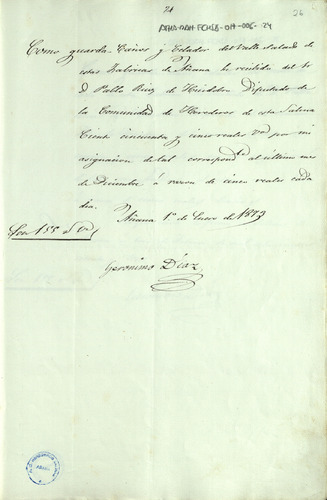 24
26
AHA-AAH-FCMLB-011-006-24
Como guarda Caños y Celador del Valle Salado de
estas Fabricas de Añana he recibido del Sr
D Pablo Ruiz de Diputado de
la Comunidad de Herederos de esta Salina
Ciento cincuenta y cinco reales vn por mi
asignacion de tal correspondte al último mes
de Diciembre á razon de cinco reales cada
dia. Añana 1º de Enero de 1873
Son 155 Rs Vn
Geronimo Díaz